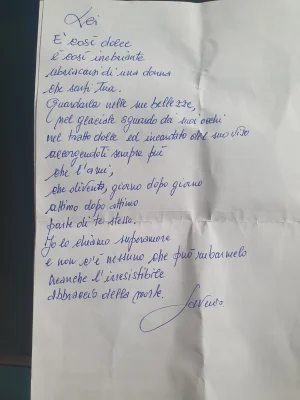 Lei
E' così dolce
è così inebriante
ubriacarsi di una donna
che senti Tua.
Guardarla nelle sue bellezze,
nel glaciale sguardo da suoi occhi
nel tratto dolce ed incantato del suo viso
accorgendoti sempre più
che l'ami,
che diventa, giorno dopo giorno
attimo dopo attimo
parte di te stesso.
Io lo chiamo superamore
e non c'è nessuno che può rubarmelo
neanche l'irresistibile
abbraccio della morte.